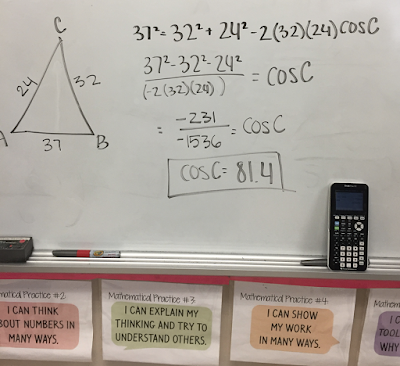 C
37² = 32² + 24² - 2(32)(24) COS C
37² - 32² - 24²
(-2(32)(24))
= COS C
24
32
A
B
37
= -231
-1536
= COS C
COS C = 81.4
Mathematical Practice #2
I CAN THINK
ABOUT NUMBERS IN
MANY WAYS.
Mathematical Practice #3
I CAN EXPLAIN MY
THINKING AND TRY TO
UNDERSTAND OTHERS.
Mathematical Practice #4
I CAN SHOW
MY WORK
IN MANY WAYS.
Mathem
I C
TOOL
WHY